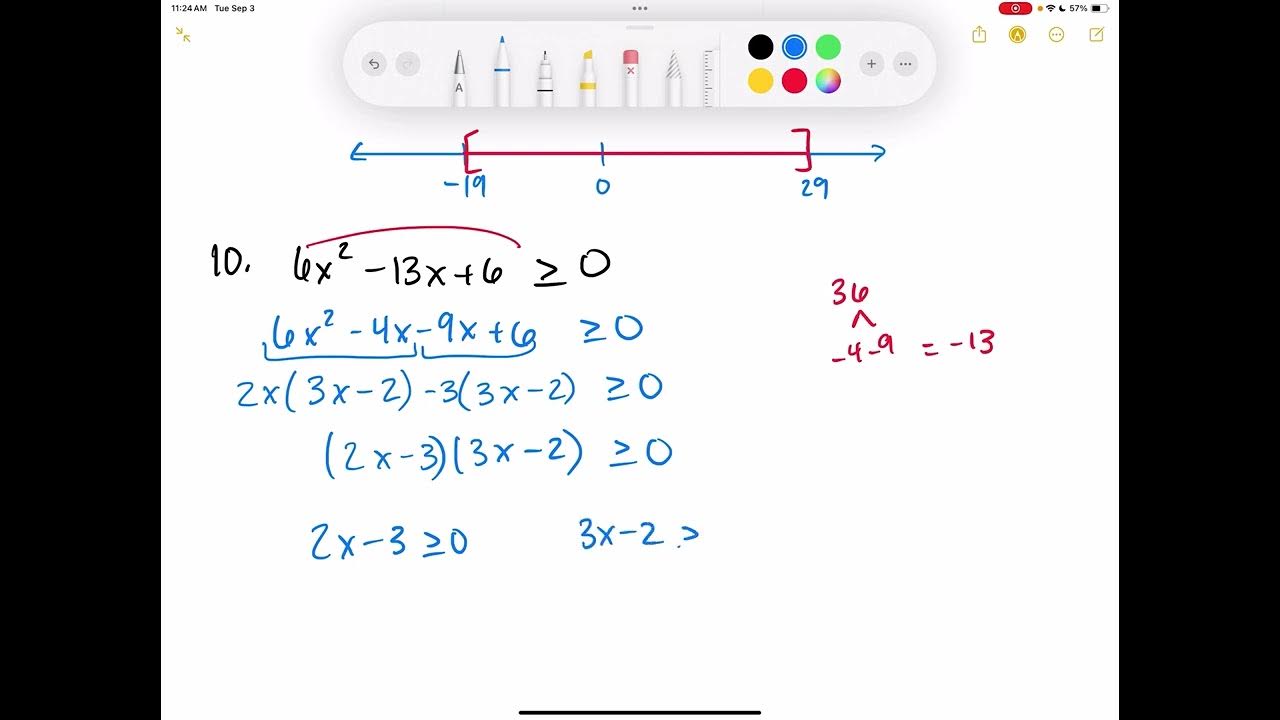 11:24 AM Tue Sep 3
57%
A
-19 0 29
10. 6x² -13x+6 ≥ 0
36
6x² - 4x - 9x + 6 ≥ 0
-4 -9 = -13
2x(3x-2) -3(3x-2) ≥ 0
(2x-3)(3x-2) ≥ 0
2x-3 ≥ 0 3x-2 >